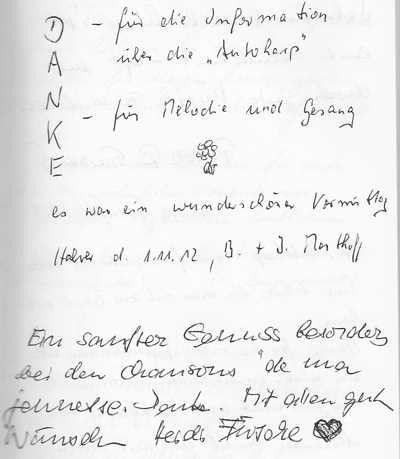 D - für die Information
A über die „Autoharp"
N
K - für Melodie und Gesang
E
es war ein wunderschöner Vormittag
Halver d. 1.11.12, B. + J.
Ein sanfter Genuss besonders
bei den Chansons "de ma
jeunesse. Danke. Mit allen guten
Wünschen Heidi